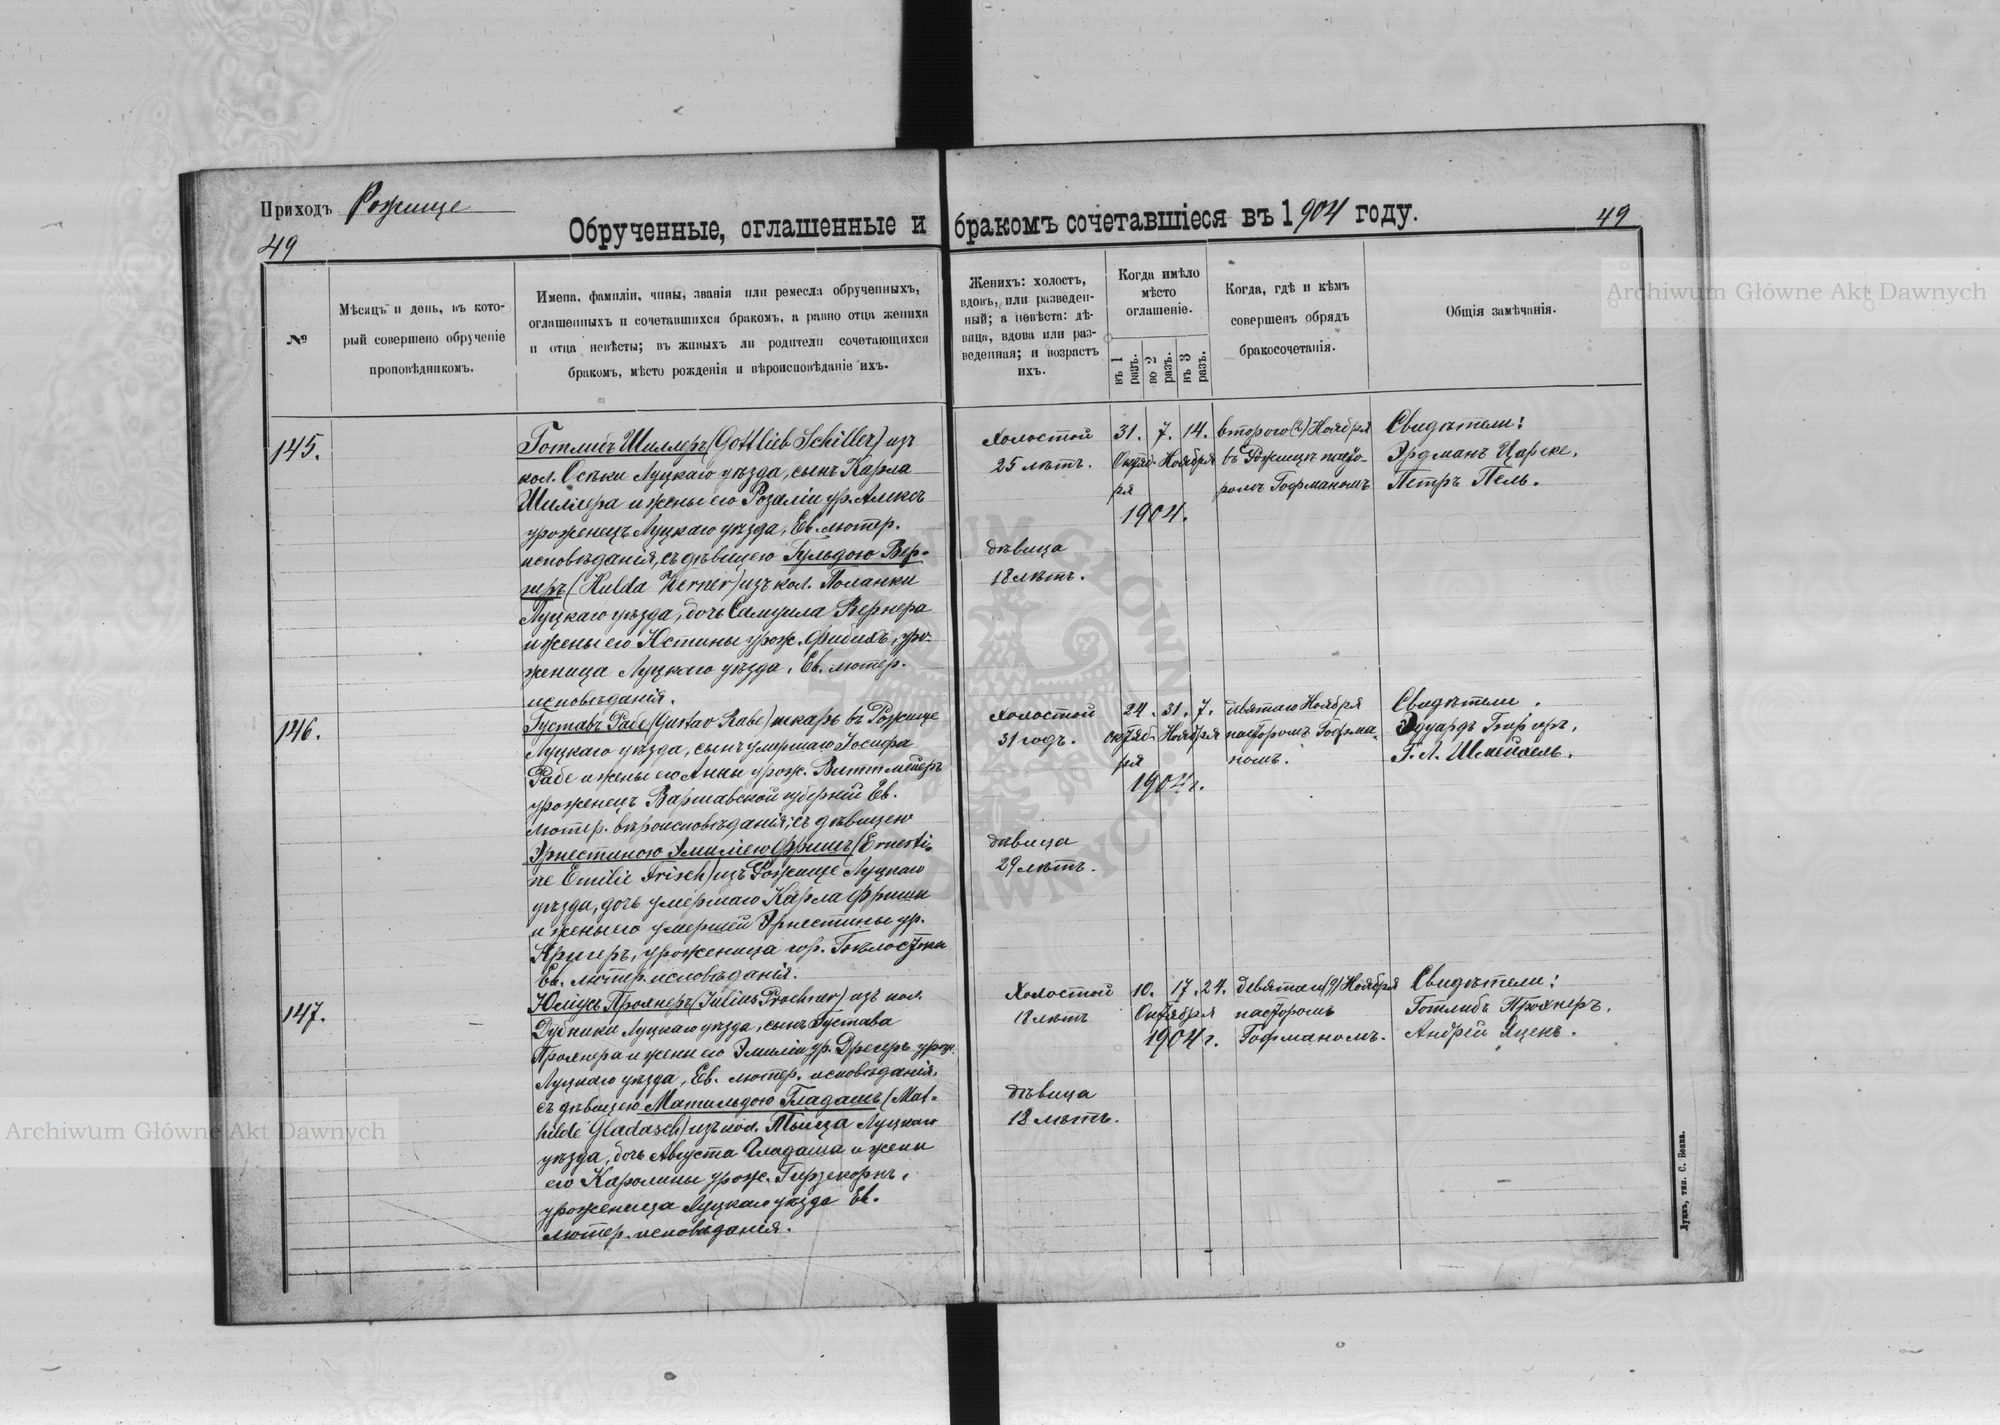 Приходъ Рожище
Обрученные, оглашенные и бракомъ сочетавшіеся въ 1904 году.
49
49
№
Мѣсяцъ и день, въ кото-
рый совершено обрученіе
проповѣдникомъ.
Имена, фамиліи, чины, званія или ремесла обрученныхъ,
оглашенныхъ и сочетавшихся бракомъ, а равно отца жениха
и отца невѣсты; въ живыхъ ли родители сочетающихся
бракомъ, мѣсто рожденія и вѣроисповѣданіе ихъ.
Женихъ: холостъ,
вдовъ, или разведен-
ный; а невѣста: дѣ-
вица, вдова или раз-
веденная; и возрастъ
ихъ.
Когда имѣло
мѣсто
оглашеніе.
въ 1 разъ.
во 2 разъ.
въ 3 разъ.
Когда, гдѣ и кѣмъ
совершенъ обрядъ
бракосочетанія.
Общія замѣчанія.
145.
Готлибъ Шиллеръ (Gottlieb Schiller) изъ
кол. Осѣки Луцкаго уѣзда, сынъ Карла
Шиллера и жены его Розаліи ур.
уроженецъ Луцкаго уѣзда, Ев. лютер.
исповѣданія, съ дѣвицею Гульдою Вер-
неръ (Hulda Werner) изъ кол. Поланки
Луцкаго уѣзда, дочь Самуила Вернера
и жены его Юстины урож. Фибихъ, уро-
женица Луцкаго уѣзда, Ев. лютер.
исповѣданія.
Холостой
25 лѣтъ.
дѣвица
18 лѣтъ.
31. 7. 14.
Октяб- Ноября
ря
1904.
второго (2) Ноября
въ Рожищѣ пасто-
ромъ Гофманомъ
Свидѣтели:
Эрдманъ Царске,
Петръ Пель.
146.
Густавъ Рабе (Gustav Rabe) пекарь въ Рожище
Луцкаго уѣзда, сынъ умершаго Іосифа
Рабе и жены его Анны урож. Виттмейеръ
уроженецъ Варшавской губерніи Ев.
лютер. вѣроисповѣданія, съ дѣвицею
Эрнестиною Эмиліею Фришъ (Ernesti-
ne Emilie Frisch) изъ Рожище Луцкаго
уѣзда, дочь умершаго Карла Фриша
и жены его умершей Эрнестины ур.
Кригеръ, уроженица гор. Бѣлостока
Ев. лютер. исповѣданія.
Холостой
31 годъ.
дѣвица
29 лѣтъ.
24. 31. 7.
октяб- Ноября
ря
1904 г.
девятаго Ноября
пасторомъ Гофма-
номъ.
Свидѣтели.
Эдуардъ
Г. Л.
147.
Юліусъ Прохнеръ (Julius Prochner) изъ кол.
Дубники Луцкаго уѣзда, сынъ Густава
Прохнера и жены его Эмиліи ур. Дрегеръ урож.
Луцкаго уѣзда, Ев. лютер. исповѣданія,
съ дѣвицею Матильдою Гладашъ (Mat-
hilde Gladasch) изъ кол. Луцкаго
уѣзда, дочь Августа Гладаша и жены
его Каролины урож. Гирзекорнъ,
уроженица Луцкаго уѣзда Ев.
лютер. исповѣданія.
Холостой
18 лѣтъ
дѣвица
18 лѣтъ.
10. 17. 24.
Октября
1904 г.
девятаго (9) Ноября
пасторомъ
Гофманомъ.
Свидѣтели:
Готлибъ Прохнеръ,
Андрей Яценъ.
Луцкъ, тип. С. Бонка.
Archiwum Główne Akt Dawnych
Archiwum Główne Akt Dawnych